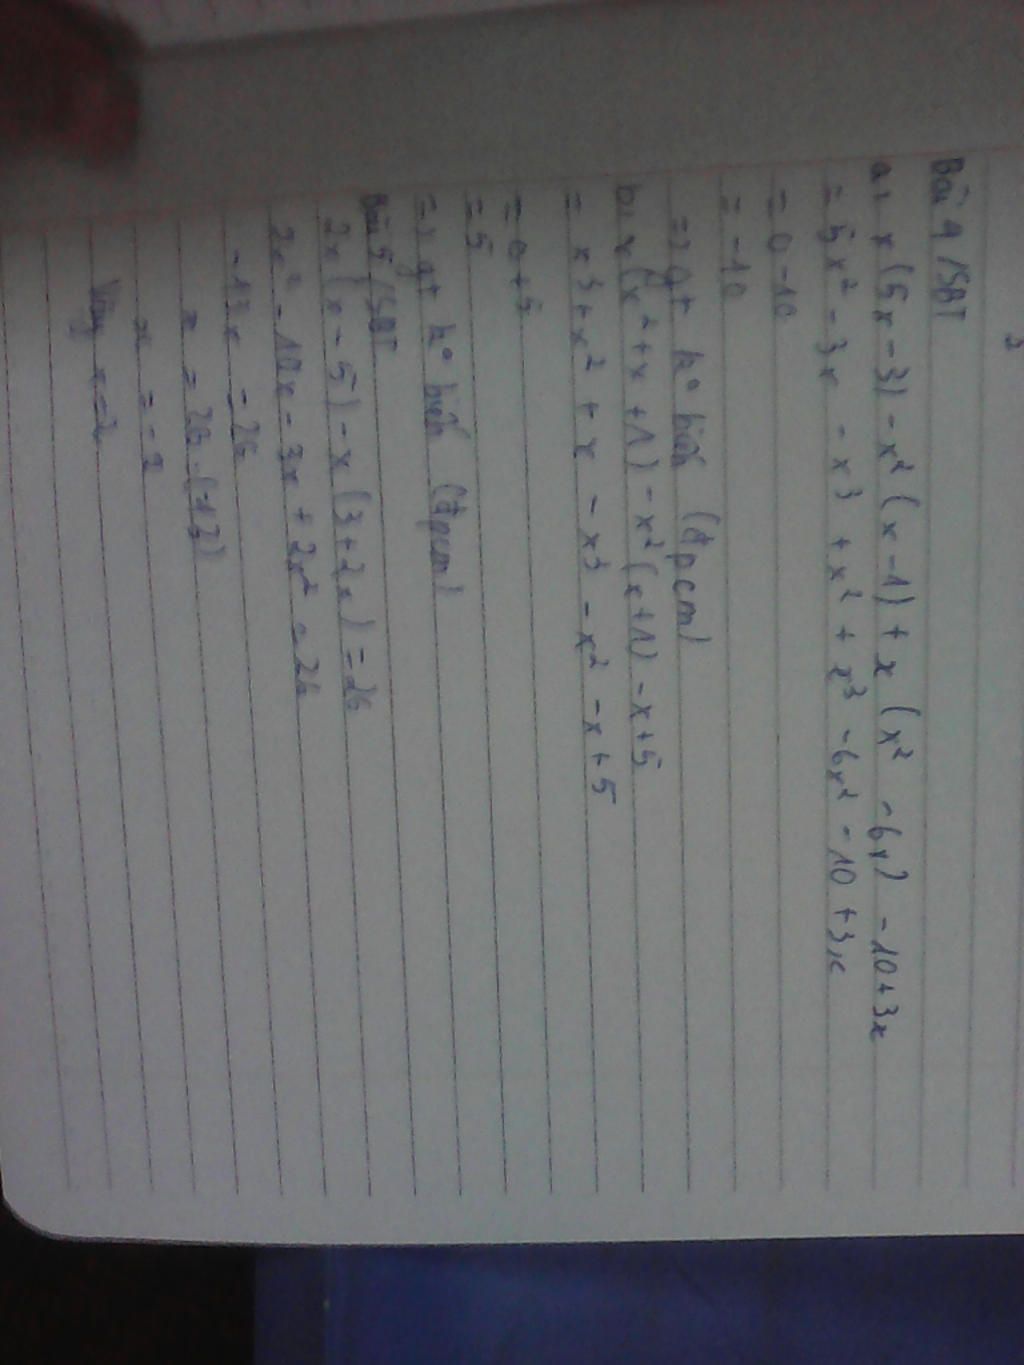 Bài 4 /SBT
a, x(5x-3) - x²(x-1) + x(x² -6x) -10+3x
= 5x² - 3x - x³ + x² + x³ -6x² -10 +3x
= 0 -10
= -10
=> gt k° biến (đpcm)
b, x(x²+x+1) - x²(x+1) - x+5
= x³+x² + x - x³ - x² - x + 5
= 0+5
= 5
=> gt k° biến (đpcm)
Bài 5 /SBT
2x(x-5) - x(3+2x) = 26
2x² - 10x - 3x + 2x² = 26
-13x = 26
x = 26:(-13)
x = -2
Vậy x=2